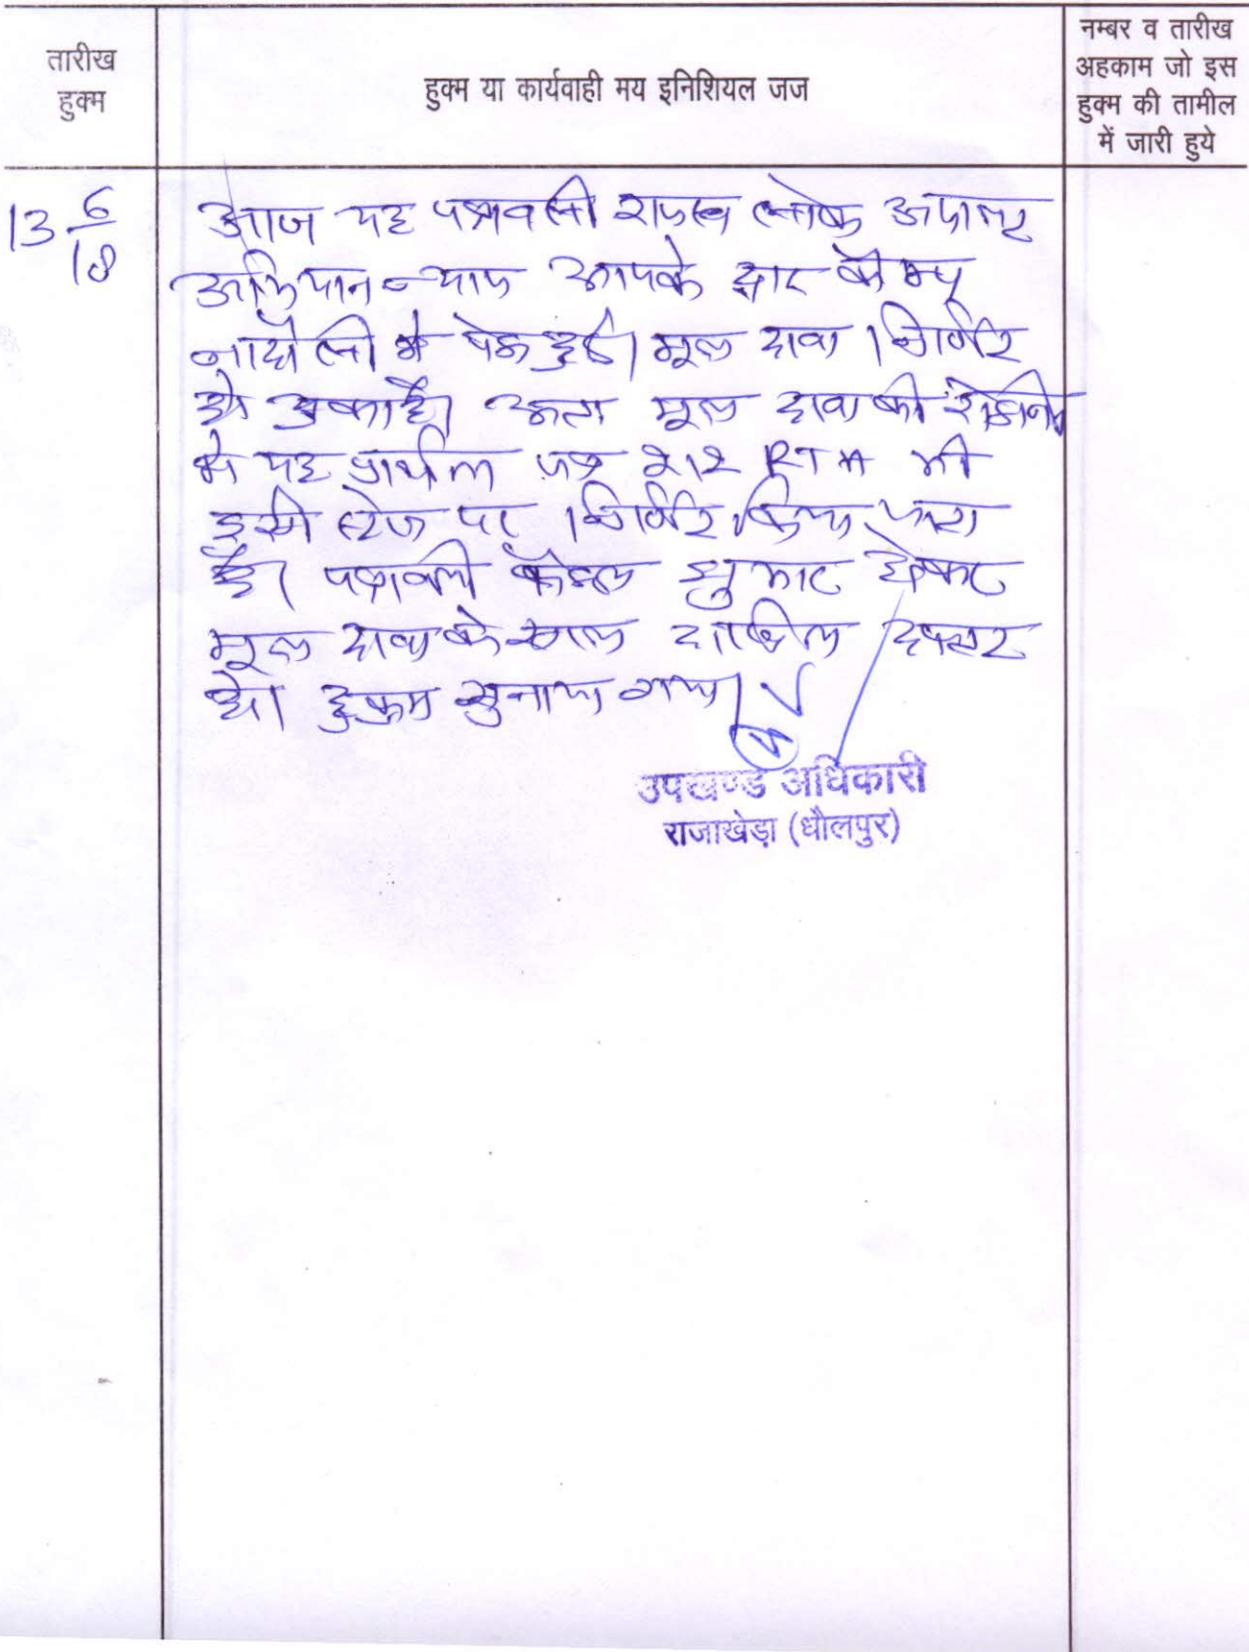 तारीख
हुक्म
हुक्म या कार्यवाही मय इनिशियल जज
नम्बर व तारीख
अहकाम जो इस
हुक्म की तामील
में जारी हुये
13 6/18
आज यह पत्रावली राजस्व लोक अदालत
अभियान न्याय आपके द्वार कैम्प
में पेश हुई। मूल दावा निर्णित
हो चुका है। अतः मूल दावा की रोशनी
में यह प्रार्थना पत्र 212 RTA भी
इसी स्टेज पर निर्णित किया जाता
है। पत्रावली फैसल शुमार होकर
मूल दावा के साथ दाखिल दफ्तर
हो। हुकुम सुनाया गया।
उपखण्ड अधिकारी
राजाखेड़ा (धौलपुर)